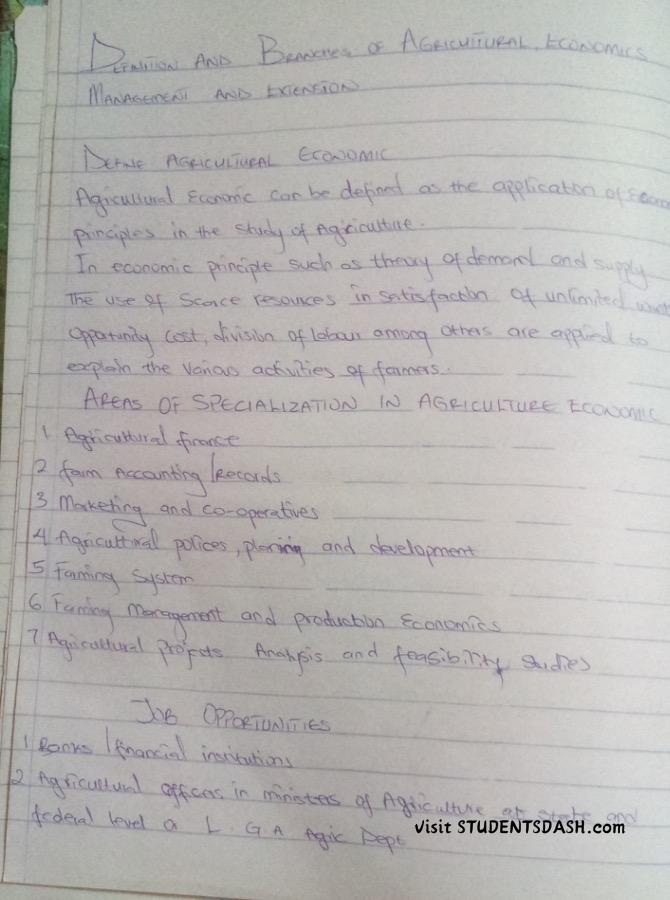 DEFINITION AND BRANCHES OF AGRICULTURAL ECONOMICS
MANAGEMENT AND EXTENSION
DEFINE AGRICULTURAL ECONOMIC
Agricultural Economic can be defined as the application of
principles in the study of Agriculture.
In economic principle such as theory of demand and supply
The use of Scarce resources in satisfaction of unlimited
Opportunity cost, division of labour among others are applied to
explain the various activities of farmers.
AREAS OF SPECIALIZATION IN AGRICULTURE ECONOMIC
1 Agricultural finance
2 farm Accounting/Records
3 Marketing and co-operatives
4 Agricultural polices, planing and development
5 Faming System
6 Faming Management and production Economics
7 Agricultural projects Analysis and feasibility studies
JOB OPPORTUNITIES
1 Banks/financial institutions
2 Agricultural offices in ministers of Agriculture at state and
federal level a L.G.A Agric Dept
Visit STUDENTSDASH.com